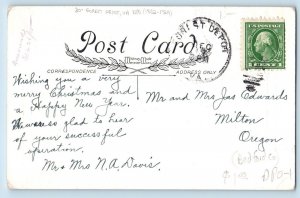 Post Card
CORRESPONDENCE
ADDRESS ONLY
FOREST DEPOT
VA.
1 CENT 1
Wishing you a very
merry Christmas and
a Happy New Year.
We were glad to hear
of your successful
operation.
Mr & Mrs N.A. Davis.
Mr and Mrs Jas Edwards
Milton
Oregon
Bedford Co
DPO-1